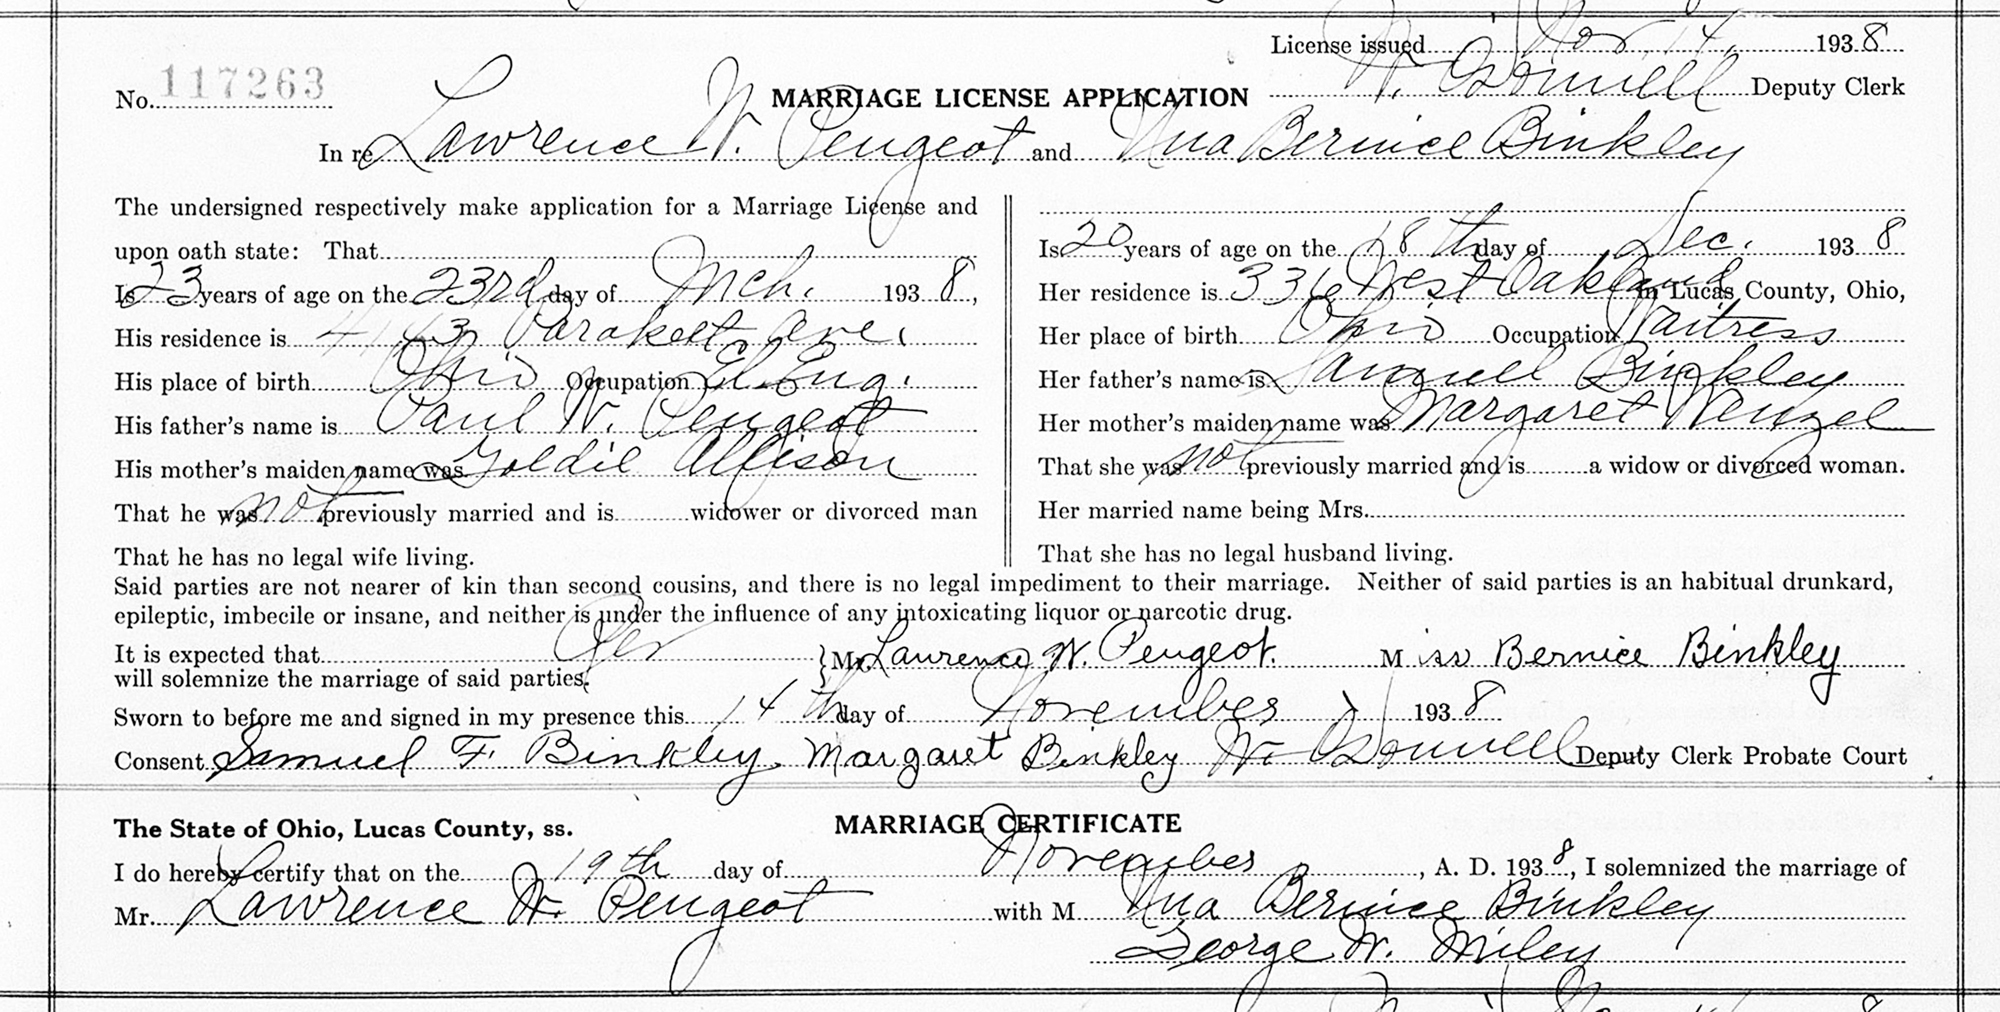 License issued Nov. 14, 1938
No. 117263 MARRIAGE LICENSE APPLICATION W. Deputy Clerk
In re Lawrence W. Peugeot and Bernice Binkley
The undersigned respectively make application for a Marriage License and
upon oath state: That
Is 23 years of age on the 23rd day of Mch. 1938,
His residence is 4143 Parakeet Ave.
His place of birth Ohio Occupation El. Eng.
His father's name is Paul W. Peugeot
His mother's maiden name was Goldie Allison
That he was not previously married and is widower or divorced man
That he has no legal wife living.
Is 20 years of age on the 18th day of Dec. 1938
Her residence is 336 West Oakland in Lucas County, Ohio,
Her place of birth Ohio Occupation Waitress
Her father's name is Samuell Binkley
Her mother's maiden name was Margaret Wenzel
That she was not previously married and is a widow or divorced woman.
Her married name being Mrs.
That she has no legal husband living.
Said parties are not nearer of kin than second cousins, and there is no legal impediment to their marriage. Neither of said parties is an habitual drunkard,
epileptic, imbecile or insane, and neither is under the influence of any intoxicating liquor or narcotic drug.
It is expected that
will solemnize the marriage of said parties.
Mr. Lawrence W. Peugeot. Miss Bernice Binkley
Sworn to before me and signed in my presence this 14th day of November 1938
Consent Samuel F. Binkley, Margaret Binkley W. Deputy Clerk Probate Court
The State of Ohio, Lucas County, ss. MARRIAGE CERTIFICATE
I do hereby certify that on the 19th day of November, A. D. 1938, I solemnized the marriage of
Mr. Lawrence W. Peugeot with M Bernice Binkley
George W. Miley